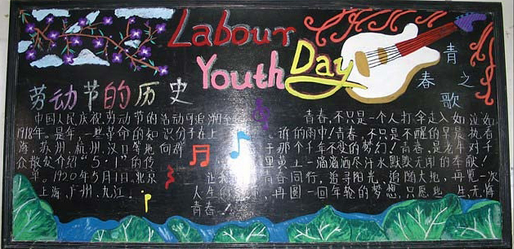 Labour
Youth Day
青春之歌
劳动节的历史
中国人民庆祝劳动节的活动可追溯至
1918年。是年，一些革命的知识分子在上
海、苏州、杭州、汉口等地向群
众散发介绍“5·1”的传
单。1920年5月1日，北京
上海、广州、九江、
青春，不只是一个人打伞走入如
诉的雨中！青春，不只是不醒的呈
于那个千年不变的梦幻！青春，是
里
一滴滴洒尽汗水默默无闻的奉献！
青春同行，追寻阳光，追随大地，再见一次
人生的
再圆一回年轮的梦想，只愿此生无悔
青春！